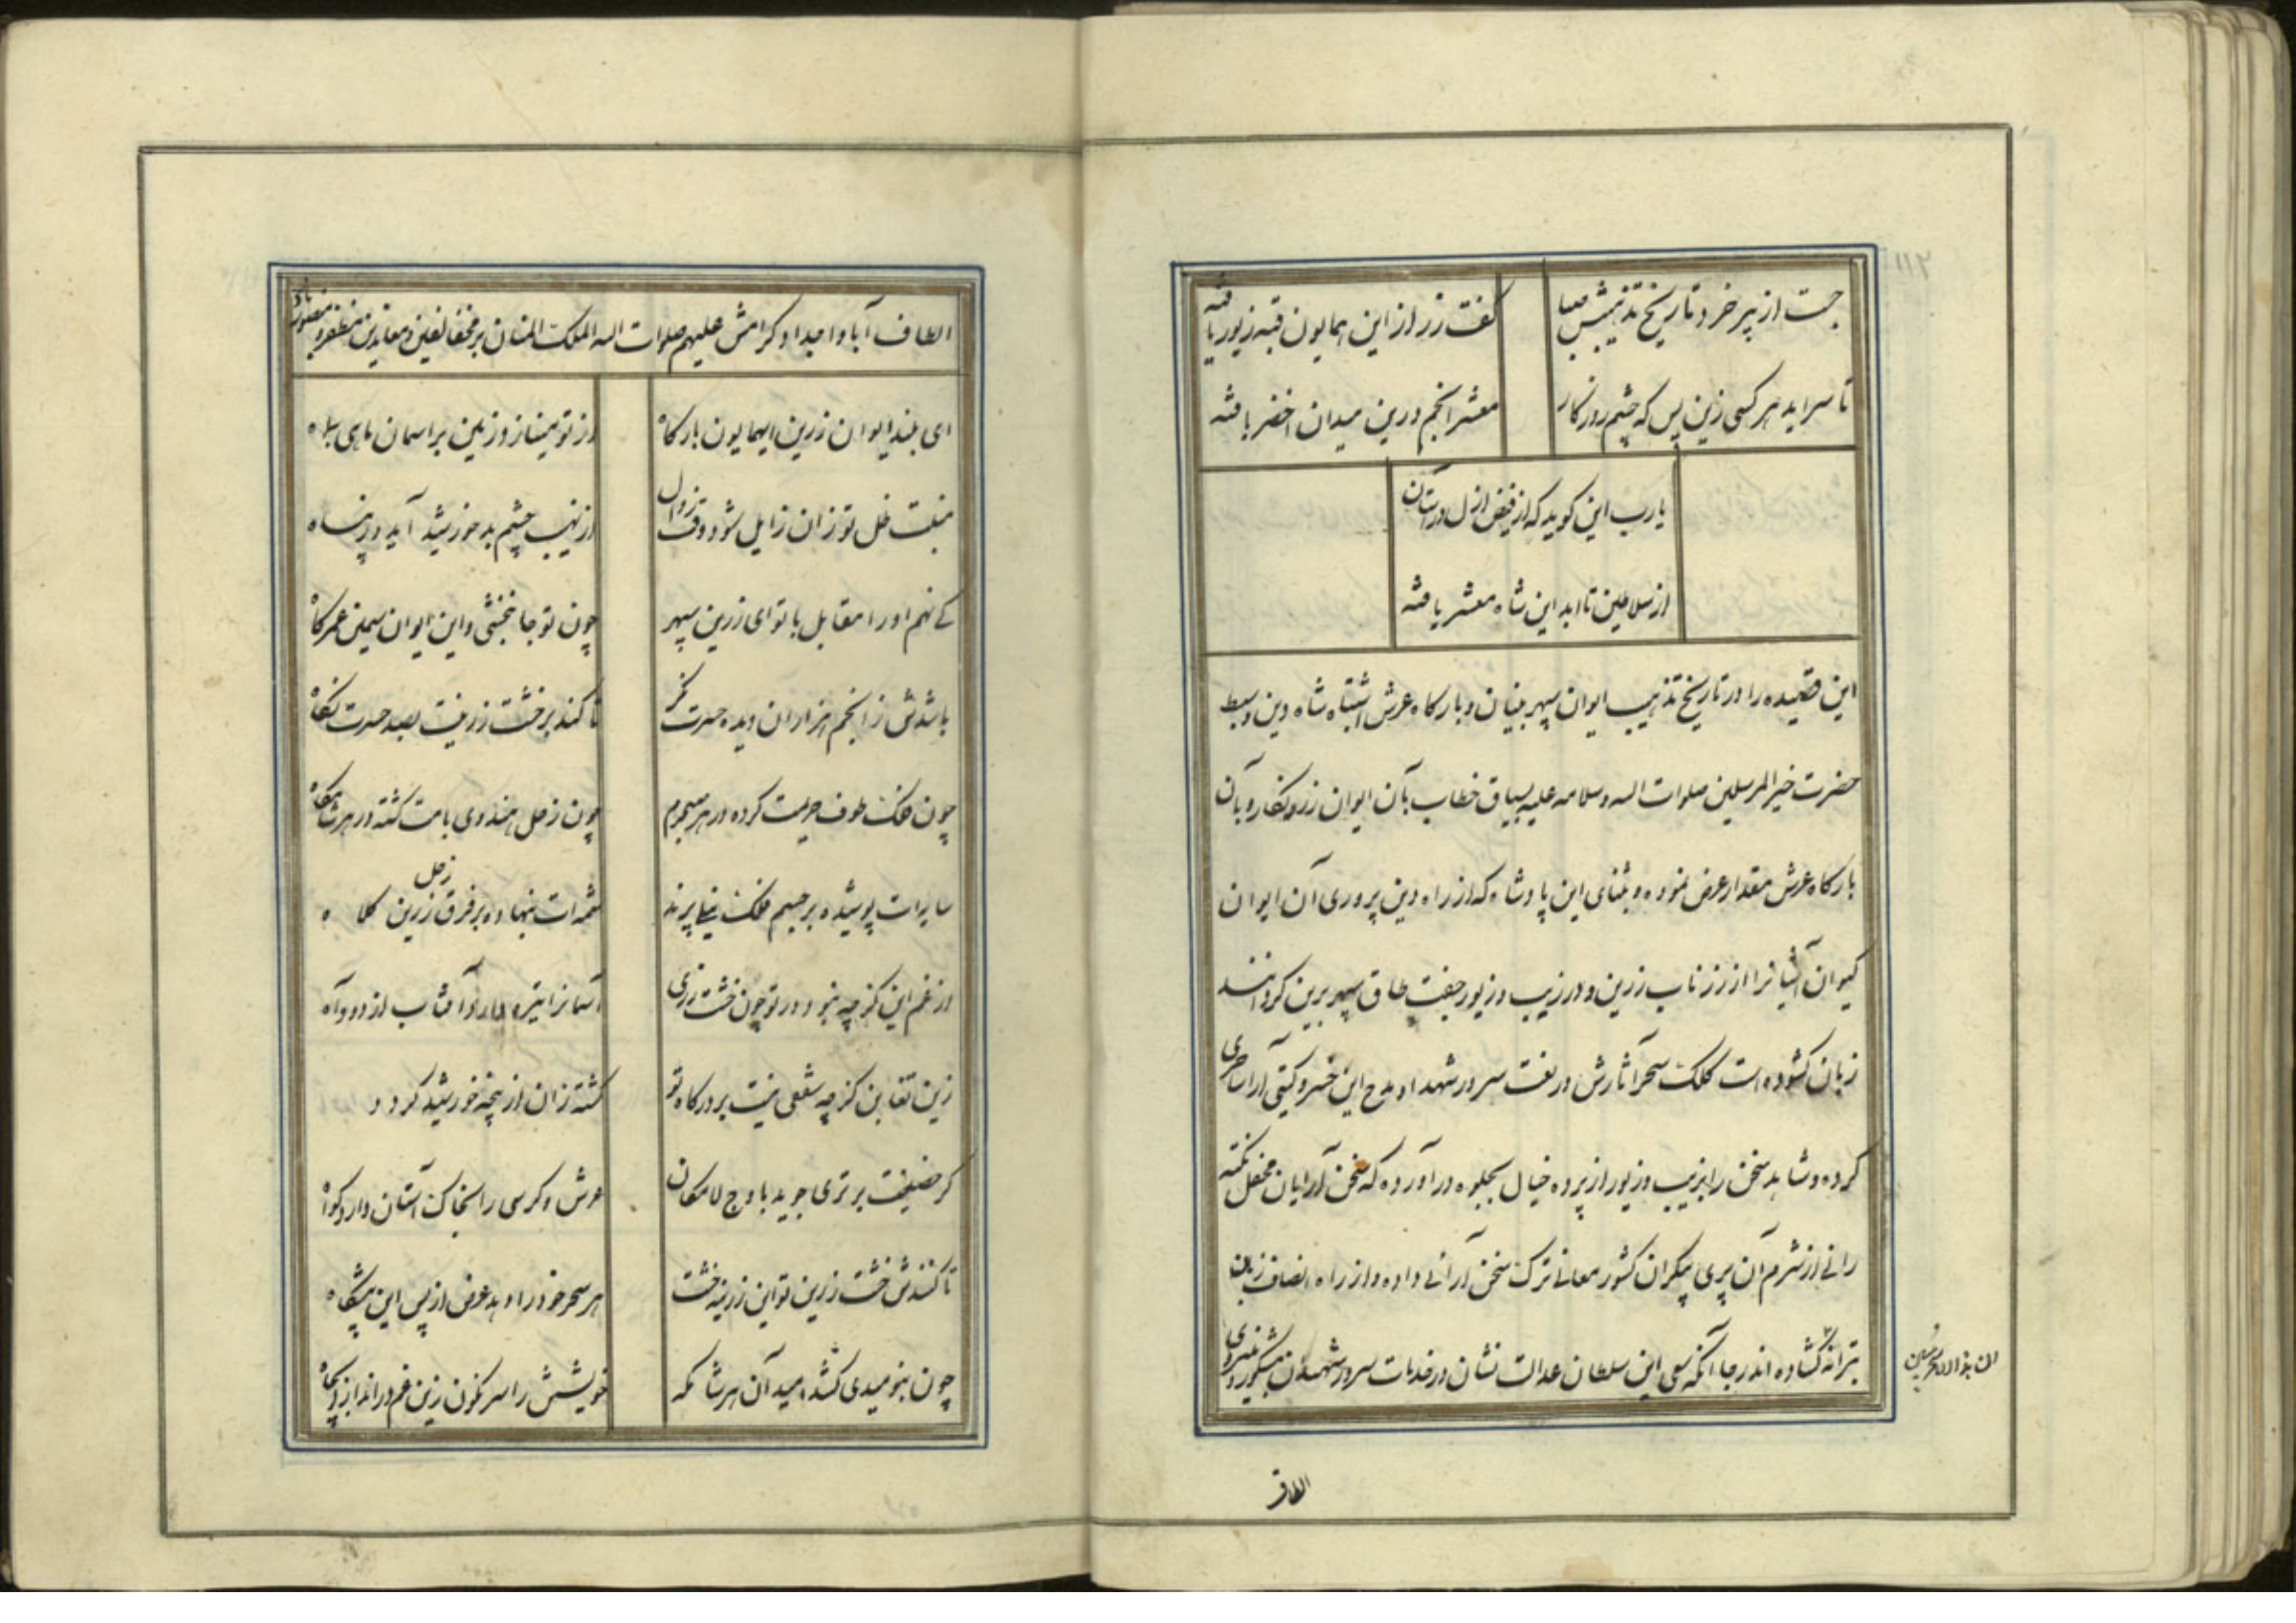 جست از پیر خرد تاریخ تذهیبش صبا
گفت زر از این همایون قبه زیور یافته
تا سراید هر کسی زین پس که چشم روزگار
معشر انجم درین میدان اخضر یافته
یارب این گوید که از فیض ازل در آستان
از سلاطین تا ابد این شاه معشر یافته
این قصیده را در تاریخ تذهیب ایوان سپهر بنیان و بارگاه عرش اشتباه شاه دین و سبط
حضرت خیر المرسلین صلوات الله و سلامه علیه بسیاق خطاب بآن ایوان زر و نگار و بآن
بارگاه عرش مقدار عرض نموده و بثنای این پادشاه که از راه دین پروری آن ایوان
کیوان آشیانرا از زر ناب زرین و در زیب و زیور جفت طاق سپهر برین کرد اند
زبان گشوده است کلک سحر آثارش در نعت سرور شهدا و مدح این خسرو گیتی آرا ساحری
کرده و شاهد سخن را بزیب و زیور از پرده خیال بجلوه در آورده که سخن آرایان محفل نکته
رانی از شرم آن پری پیکران کشور معانی ترک سخن آرائی داده و از راه انصاف زبان
بترانه گشاده اند رجا آنکه سعی این سلطان عدالت نشان در خدمات سرور شهیدان مشکور و
الطاف
الطاف آبا و اجداد کرامش علیهم صلوات الله الملک المنان بر مخالفین و معاندین مظفر و منصور باد
ای بلند ایوان زرین ای همایون بارگاه
از تو مینازد زمین بر آسمان
نیست ظل تو زان زایل شود وقت زوال
از نهیب چشم بد خورشید آید در پناه
کی نهم او را مقابل با تو ای زرین سپهر
چون تو جانبخشی و این ایوان سیمین عمرکاه
باشدش ز انجم هزاران دیده حسرت نگر
تا کند بر خشت زرینت بصد حسرت نگاه
چون فلک طوف حریمت کرده در هر صبحدم
چون زحل هندوی بامت گشته در هر شامگاه
سایه ات پوشیده بر جسم فلک نیلی پرند
شمسه ات بنهاده بر فرق زحل زرین کلاه
از غم این کز چه نبود در تو چون خشت زری
آسمانرا تیره دارد آفتاب از دود آه
زین تغابن کز چه شمعی نیست بر درگاه تو
گشته زان از پنجه خورشید گردد
گر حضیضت برتری جوید باوج لامکان
عرش و کرسی را بخاک آستان دارد گواه
تا کنندش خشت زرین تو این زرینه خشت
هر سحر خود را دهد عرض از پس این پیشگاه
چون بنومیدی کشد امید آن هر شامگه
خویشتن را سرنگون زین غم در اندازد بچاه